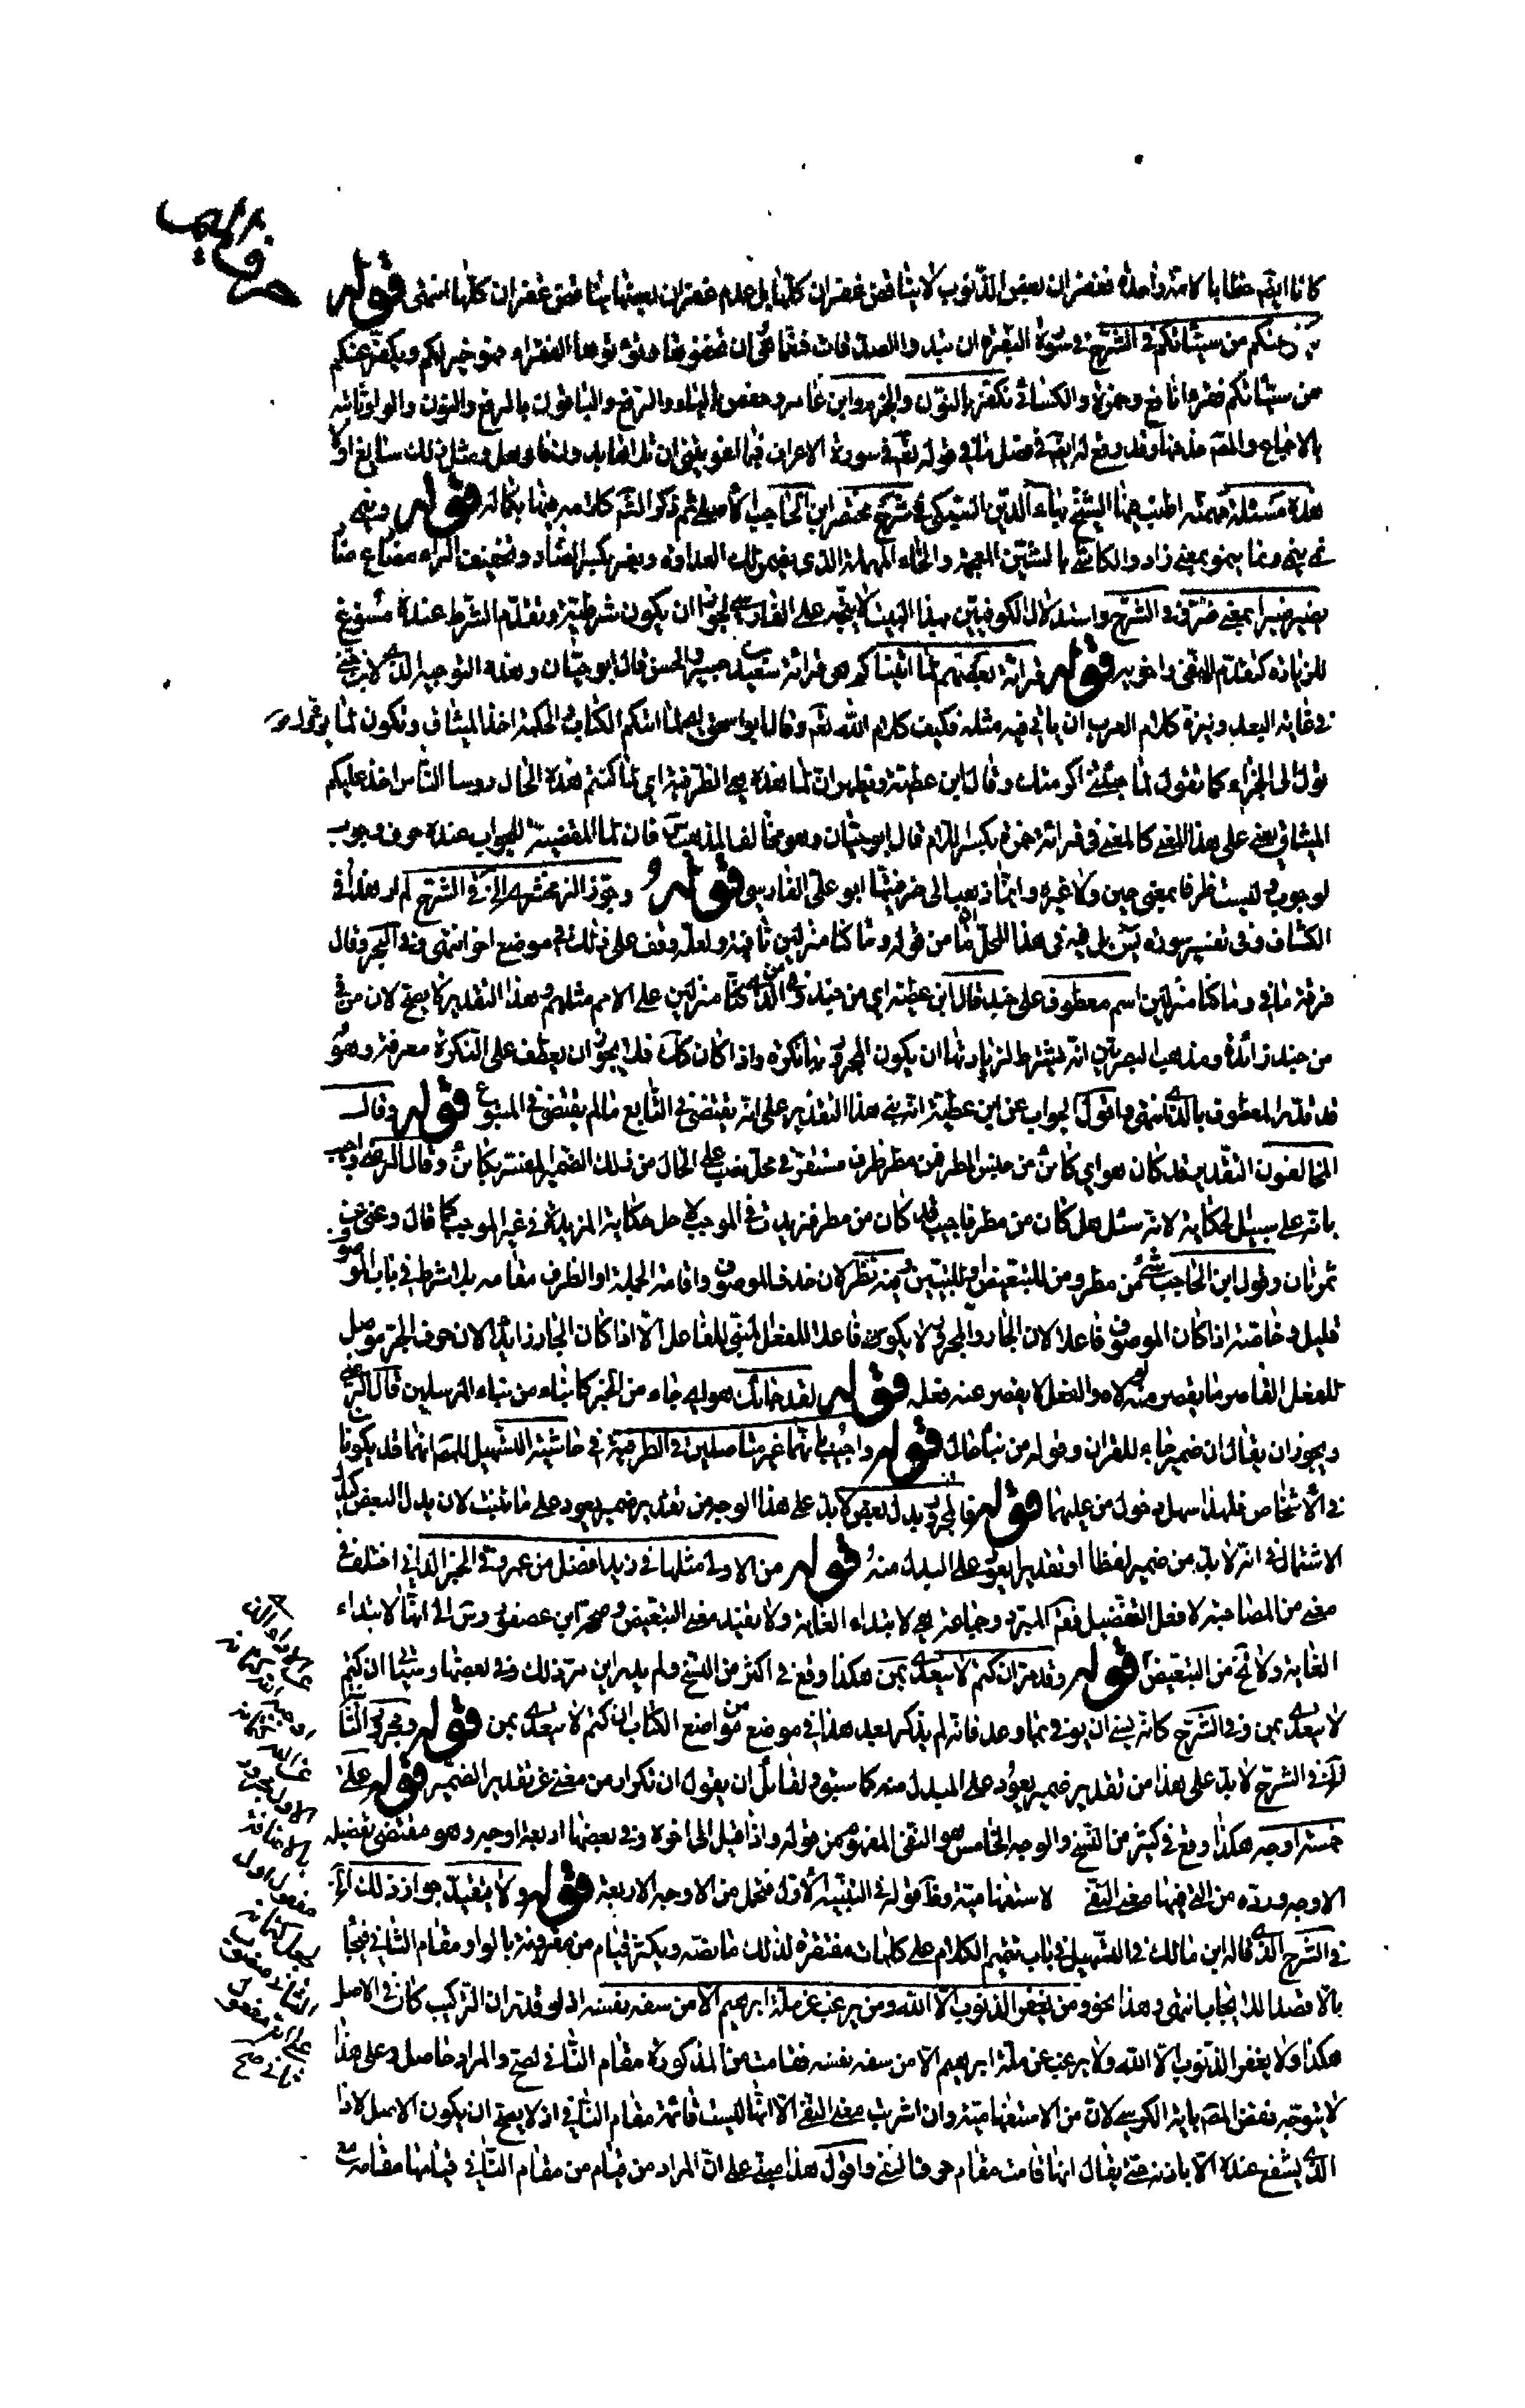 كانا ايضا خطابا لامة واحدة فغفران بعض الذنوب لا يناقض غفران كلها بل عدم غفران بعضها يناقض غفران كلها انتهى قوله
عنكم من سيئاتكم في الشرح في سورة البقرة ان تبدوا الصدقات فنعما هي وان تخفوها وتؤتوها الفقراء فهو خير لكم ويكفر عنكم
من سيئاتكم فقرا نافع وحمزة والكسائي نكفر بالنون والجزم وابن عامر وحفص بالياء والرفع والباقون بالرفع والنون والواو ثابتة
بالاجماع والمصـ حذفها وقد وقع له ايضا في فصل ما في قوله تعـ في سورة الاعراف فبما اغويتني ان تلاها بدون فا ولعل مثل ذلك سايغ اولا
هذه مسئلة مهمة اطنب فيها الشيخ بهاء الدين السبكي في شرح مختصر ابن الحاجب الاصلي ثم ذكر الشمـ كلامه فيها بكماله قوله وينمي
نمي ينمي ونما ينمو بمعنى زاد والكاشح بالشين المعجمة والحاء المهملة الذي يضمر لك العداوة ويضر بكسر الضاد وتخفيف الراء مضارع ضار
يضير ضيرا بمعنى ضر في الشرح واستدلال الكوفيين بهذا البيت لا يتجه على الفارسي لجواز ان يكون شرطية وتقدم الشرط عنده مسوغ
للزيادة كتقدم النفي واخويه قوله قراءة بعضهم لما اتيناكم هو قراءة سعيد بن جبير والحسن قال ابو حيان وهذه التوجيه الذي لابن جني
في غاية البعد وينزه كلام العرب ان ياتي فيه مثله فكيف كلام الله تعـ وقال ابو اسحق اي لما اتيكم الكتاب والحكمة اخذ الميثاق وتكون لما
تؤل الى الجزاء كما تقول لما جئتني اكرمتك وقال ابن عطية ويظهر ان لما هذه هي الظرفية اي لما كنتم بهذه الحال روسا الناس اخذ عليكم
الميثاق يعني على هذا المعنى كالمعنى في قراءة حمزة بكسر اللام قال ابو حيان وهو مخالف لمذهب س فان لما المقتضية للجواب عنده حرف وجوب
لوجوب وليست ظرفا بمعنى حين ولا غيره وانما ذهب الى ظرفيتها ابو علي الفارسي قوله وجوز الزمخشري الخ في الشرح لم ار هذا في
الكشاف في تفسير سورة يس بل فيه في هذا المحل ما من قوله وما كنا منزلين نافية ولعله وقف على ذلك في موضع اخر انتهى وفي البحر وقال
فرقة ما في وما كنا منزلين اسم معطوف على جند قال ابن عطية اي من جند ومن الذي كنا منزلين على الامم مثلهم وهذا التقدير لا يصح لان من في
من جند زائدة ومذهب البصريين انه يشترط لزيادتها ان يكون المجرور بها نكرة واذا كان كك فلا يجوز ان يعطف على النكرة معرفة وهو
قد قدر المعطوف بالذي انتهى واقول الجواب عن ابن عطية انه بنى هذا التقدير على انه يغتفر في التابع ما لم يغتفر في المتبوع قوله وقال
المخالفون التقدير قد كان هو اي كائن من جنس المطر فمن مطر ظرف مستقر في محل نصب على الحال من ذلك الضمير المفسر بكائن وقال الرضي واجيب
بانه على سبيل الحكاية لانه سئل هل كان من مطر فاجيب قد كان من مطر فزيدت في الموجب لاجل حكاية المزيدة في غير الموجب كما قال دعني من
تمرتان وقول ابن الحاجب شيء من مطر ومن للتبعيض او للتبيين فيه نظر لان حذف الموصوف واقامة الجملة او الظرف مقامه بلا شرط في باب الموصوف
قليل وخاصة اذا كان الموصوف فاعلا لان الجار والمجرور لا يكون فاعلا للفعل المبني للفاعل الا اذا كان الجار زايدا لان حرف الجر موصل
للفعل القاصر ما يقصر عنه لولاه والفعل لا يقصر عنه فعله قوله لقد جاءك هو اي جاء من الخبر كائنا من نباء المرسلين قال الرضي
ويجوز ان يقال ان ضمير جاء للقران وقوله من نبأ حال قوله واجيب بانهما غير متاصلين في الظرفية في حاشية التسهيل للمصـ انهما قد يكونا
في الاشخاص فلهذا سهل دخول من عليهما قوله فالمجرور بدل بعض لا بد على هذا الوجه من تقدير ضمير يعود على ما تنبت لان بدل البعض كبدل
الاشتمال في انه لا بد من ضمير لفظا او تقديرا يعود على المبدل منه قوله من الاولى مثلها في زيد افضل من عمرو في الجنى الداني اختلف في
معنى من المصاحبة لافعل التفضيل فقـ المبرد وجماعة هي لابتداء الغاية ولا يفيد معنى التبعيض وصححه ابن عصفور وس الى انها لابتداء
الغاية ولا تخ من التبعيض قوله وقد مر ان كنتم لا تبعدي بمن هكذا وقع في اكثر من النسخ ولم يمر اين مر ذلك وفي بعضها وسياتي ان كتم
لا تتعدى بمن وفي الشرح كانه ينبغي ان يوفي بما وعد فانه لم يذكر بعد هذا في موضع من مواضع الكتاب ان كتم لا تتعدى بمن قوله ومجرور الثا
في الشرح لا بد على هذا من تقدير ضمير يعود على المبدل منه كما سبق ولقائل ان يقول ان تكرار من مغن عن تقدير الضمير قوله على
خمسة اوجه هكذا وقع في كثير من النسخ والوجه الخامس هو النفي المفهوم من قوله واذا قيل الى اخره وفي بعضها اربعة اوجه وهو مقتضى تفصيله
الاوجه ورده من التي فيها معنى النفي لاستفهامية وظا قوله في التنبيه الاول فتحمل من الاوجه الاربعة قوله ولا يتقيد جواز ذلك الخ
في الشرح الذي قاله ابن مالك في التسهيل في باب تتميم الكلام على كلمات مفتقرة لذلك ما نصه ويكثر قيام من مقرونة بالواو مقام النافي فيجا
بالا قصدا للايجاب انتهى وهذا نحو ومن يغفر الذنوب الا الله ومن يرغب عن ملة ابرهيم الا من سفه نفسه اذ لو قدر ان التركيب كان في الاصل
هكذا ولا يغفر الذنوب الا الله ولا يرغب عن ملة ابرهيم الا من سفه نفسه فقامت من المذكورة مقام النافي لصح والمراد حاصل وعلى هذا
لا يتوجه نقض المصـ باية الكرسي لان من الاستفهامية وان اشربت معنى النفي الا انها ليست قائمة مقام النافي اذ لا يصح ان يكون الاصل لا ذا
الذي يشفع عنده الا باذنه حتى يقال انها قامت مقام حرف النفي واقول هذا مبني على ان المراد من قيام من مقام النافي قيامها مقامه